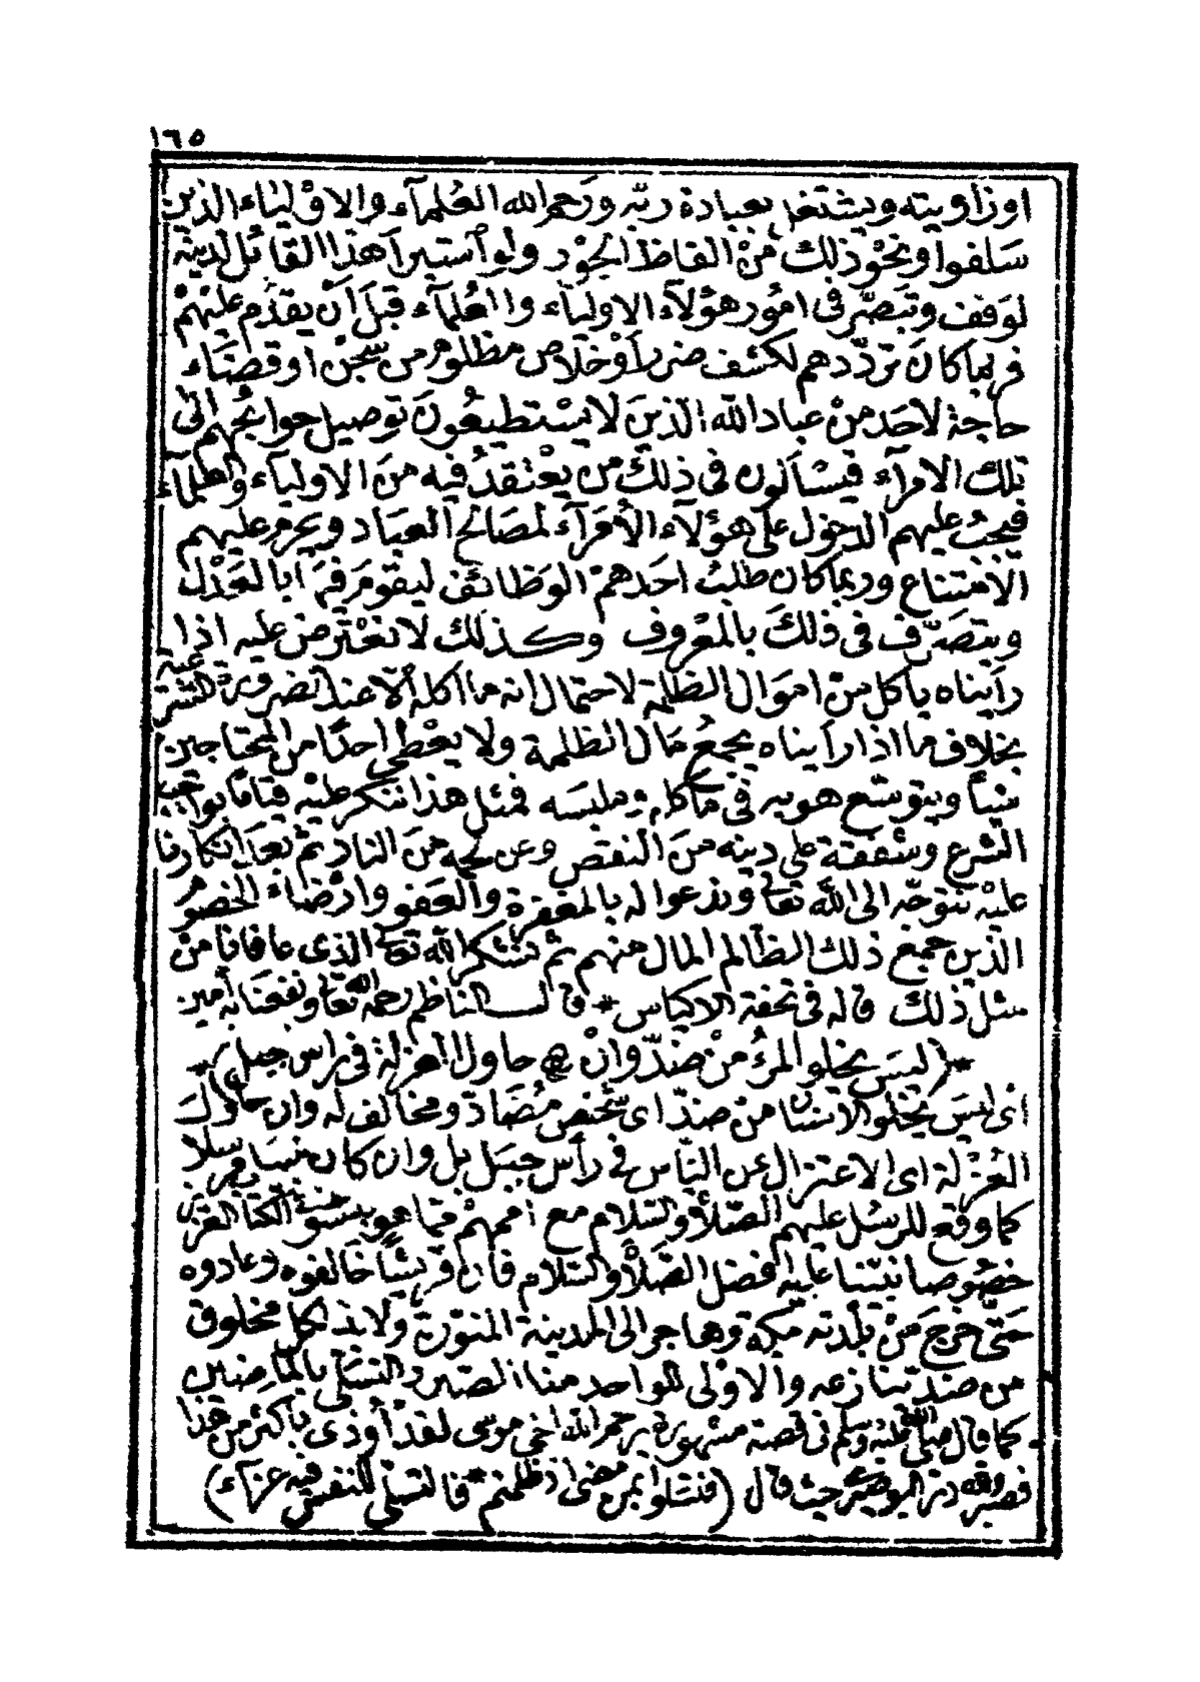 ١٦٥
اوزاويته ويشتغل بعبادة ربّه ورحم الله العُلمآء والاوْلياء الذين
سَلفوا ونحوْ ذلك منْ الفاظ الجوْد ولو استبرأ هذا القائل لدينه
لوَقف وتبصّر فى امُور هؤلآء الاوليآء والعُلمآء قبلَ أنْ يقدُم عليْهمْ
فربما كانَ تردّدهم لكشف ضرر أوْ خلاص مظلوم من سجْن او قضَاء
حاجة لاحَد منْ عباد الله الذينَ لا يسْتطيعُونَ توصيل حوائجهم الى
تلك الامرآء فيسْألون فى ذلكَ من يعْتقدُ فيه منَ الاوليآء والعلمآء
فيجبُ عليهم الدخول على هؤلآء الأمَرآء لمصَالح العبَاد ويحرم عليهم
الامتناع وربما كان طلبُ احَدهمْ الوَظائف ليقومَ فيهَا بالعَدْل
ويتصَرّف فى ذلكَ بالمعْروف وكذلك لا نعْترض عليه اذا
رأيناه يأكل منْ امْوَال الظلمة لاحتمال انه ما اكله الا عند الضرورة الشرعية
بخلاف ما اذا رأيناه يجمعُ مَال الظلمة ولا يعْطى احدًا من المحتاجين
شيأ ويتوسّع هو به فى مأكله وملبسَه فمثل هذا ننكر عليْه قيامًا بواجب
الشرع وشفقة على دينه منَ النقص وعن لحمه منَ النار ثم بعدَ انكارنا
عليْه نتوجّه الى الله تعالى وندعوا له بالمغفرة والعَفو وارْضاء الخصُوم
الذين جمع ذلك الظالم المال منهم ثم نشكر الله تعالى الذى عافانا منْ
مثل ذلك قاله فى تحفة الاكياس * قال الناظم رحمه الله تعالى ونفعنَا به أمين
*(ليسَ يخلو المرءُ منْ ضدّ وانْ * حاول العزلة فى راس جبل)*
اى ليسَ يخلو الانسان منْ ضدّ اى شخص مُضَادّ ومخالف له وان حاول
العُزلة اى الاعتزال عن النّاس فى رأس جبَل بل وان كان نبيا مرسلا
كما وقع للرسُل عليهم الصّلاة والسّلام مع أممهمْ فيما هو مبسوط فى الكتاب العزيز
خصُوصا نبيّنا عليه افضل الصّلاة والسّلام فان قريشًا خالفوه وعادوه
حَتى خرج منْ بلدته مكة وهاجر الى المدينة المنوّرة ولا بدّ لكل مخلوق
من ضد ينازعه والاوْلى للواحد منا الصّبر والتسَلى بالماضين
كما قال صلى الله عليه وسلم فى قصة مشهورة يرحم الله اخى موسى لقد أوذى بأكثر من هذا
فصبر ولله در البوصيرى حيث قال (فتسَلوا بمن مضى اذ ظلمتم * فالتسلى للنفس فيه عزآء)